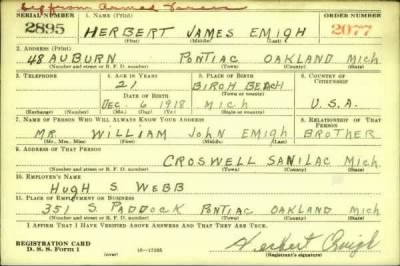 from Armed Forces
SERIAL NUMBER 1. NAME (Print) ORDER NUMBER
2895 HERBERT JAMES EMIGH 2077
(First) (Middle) (Last)
2. ADDRESS (Print)
48 AUBURN PONTIAC OAKLAND MICH
(Number and street or R. F. D. number) (Town) (County) (State)
3. TELEPHONE 4. AGE IN YEARS 5. PLACE OF BIRTH 6. COUNTRY OF CITIZENSHIP
21 BIRCH BEACH
DATE OF BIRTH (Town or county)
DEC. 6 1918 MICH U.S.A.
(Exchange) (Number) (Mo.) (Day) (Yr.) (State or country)
7. NAME OF PERSON WHO WILL ALWAYS KNOW YOUR ADDRESS 8. RELATIONSHIP OF THAT PERSON
MR. WILLIAM JOHN EMIGH BROTHER
(Mr., Mrs., Miss) (First) (Middle) (Last)
9. ADDRESS OF THAT PERSON
CROSWELL SANILAC MICH.
(Number and street or R. F. D. number) (Town) (County) (State)
10. EMPLOYER'S NAME
HUGH S WEBB
11. PLACE OF EMPLOYMENT OR BUSINESS
351 S. PADDOCK PONTIAC OAKLAND MICH
(Number and street or R. F. D. number) (Town) (County) (State)
I AFFIRM THAT I HAVE VERIFIED ABOVE ANSWERS AND THAT THEY ARE TRUE.
REGISTRATION CARD
D. S. S. Form 1 (over) Herbert Emigh
(Registrant's signature)